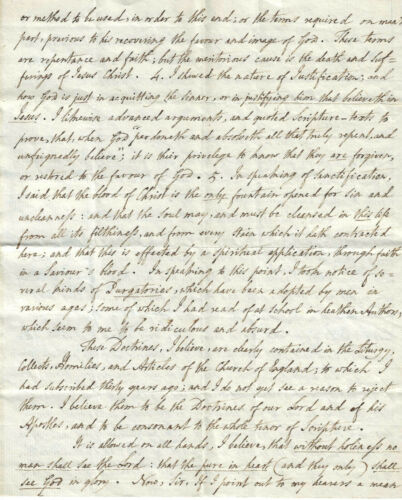 or method to be used, in order to this end; or the terms required on man's
part, previous to his recovering the favour and image of God. These terms
are repentance and faith; but the meritorious cause is the death and suf-
ferings of Jesus Christ. 4. I shewed the nature of Justification; and
how God is just in acquitting the sinner, or in justifying him that believeth in
Jesus. I likewise advanced arguments, and quoted Scripture-texts to
prove, that, when God "pardoneth and absolveth all that truly repent, and
unfeignedly believe"; it is their privilege to know that they are forgiven,
or restored to the favour of God. 5. In speaking of Sanctification,
I said that the blood of Christ is the only fountain opened for sin and
uncleanness: and that the Soul may, and must be cleansed in this life
from all its filthiness, and from every stain which it hath contracted
here; and that this is effected by a spiritual application, through faith
in a Saviour's blood. In speaking to this point, I took notice of se-
veral kinds of Purgatories, which have been adopted by men in
various ages; some of which I had read of at school in heathen Authors,
which seem to me to be ridiculous and absurd.
These Doctrines, I believe, are clearly contained in the Liturgy,
Collects, Homilies, and Articles of the Church of England; to which I
had subscribed thirty years ago; and I do not yet see a reason to reject
them. I believe them to be the Doctrines of our Lord and of his
Apostles, and to be consonant to the whole tenor of Scripture.
It is allowed on all hands, I believe, that without holiness no
man shall see the Lord: that the pure in heart (and they only) shall
see God in glory. Now, Sir, if I point out to my hearers a mean